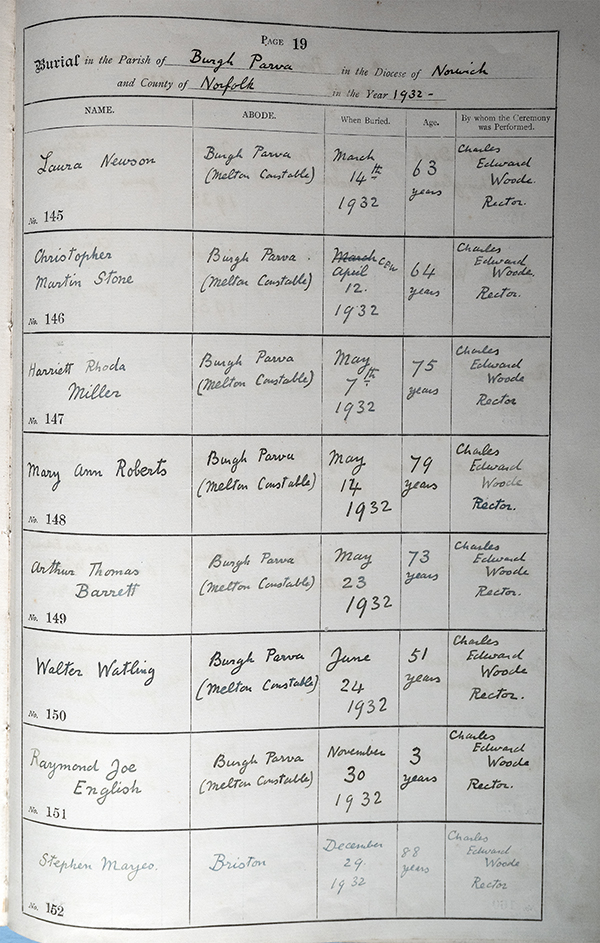 PAGE 19
Burial in the Parish of Burgh Parva in the Diocese of Norwich
and County of Norfolk in the Year 1932 -
NAME. ABODE. When Buried. Age. By whom the Ceremony was Performed.
Laura Newson
No. 145
Burgh Parva
(Melton Constable)
March
14th
1932
63
years
Charles
Edward
Woode.
Rector.
Christopher
Martin Stone
No. 146
Burgh Parva.
(Melton Constable)
March CEW
April
12.
1932
64
years
Charles
Edward
Woode.
Rector.
Harriett Rhoda
Miller
No. 147
Burgh Parva
(Melton Constable)
May
7th
1932
75
years
Charles
Edward
Woode
Rector
Mary Ann Roberts
No. 148
Burgh Parva
(Melton Constable)
May
14
1932
79
years
Charles
Edward
Woode
Rector.
Arthur Thomas
Barrett
No. 149
Burgh Parva
(Melton Constable)
May
23
1932
73
years
Charles
Edward
Woode
Rector.
Walter Watling
No. 150
Burgh Parva
(Melton Constable)
June
24
1932
51
years
Charles
Edward
Woode
Rector.
Raymond Joe
English
No. 151
Burgh Parva
(Melton Constable)
November
30
1932
3
years
Charles
Edward
Woode
Rector.
Stephen Mayes.
No. 152
Briston
December
29.
1932
88
years
Charles
Edward
Woode
Rector